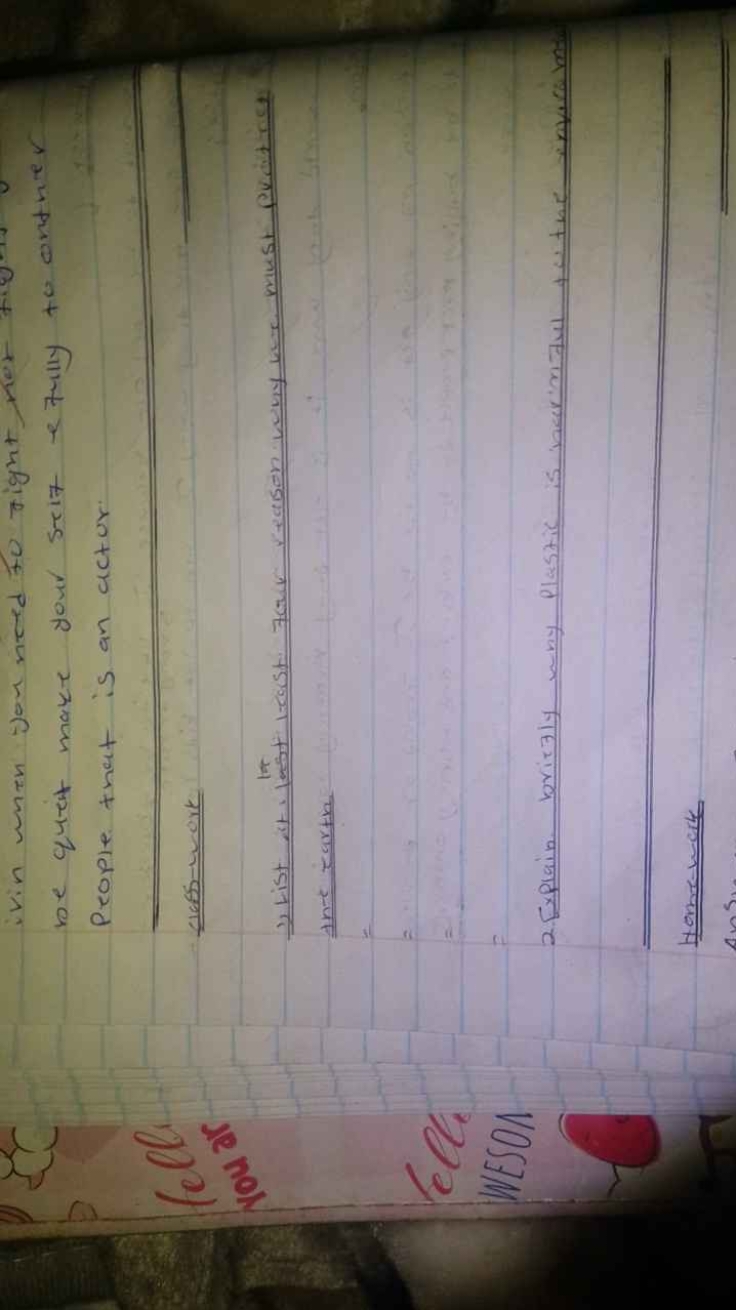 when you need to right not
be quiet make your self e fully to onther
People that is an actor.
class-work
1) List at least four reason why we must
the earth
=
=
=
=
2. Explain briefly why plastic is harmful to the
Homework
fell
you ar
fell
WESOM